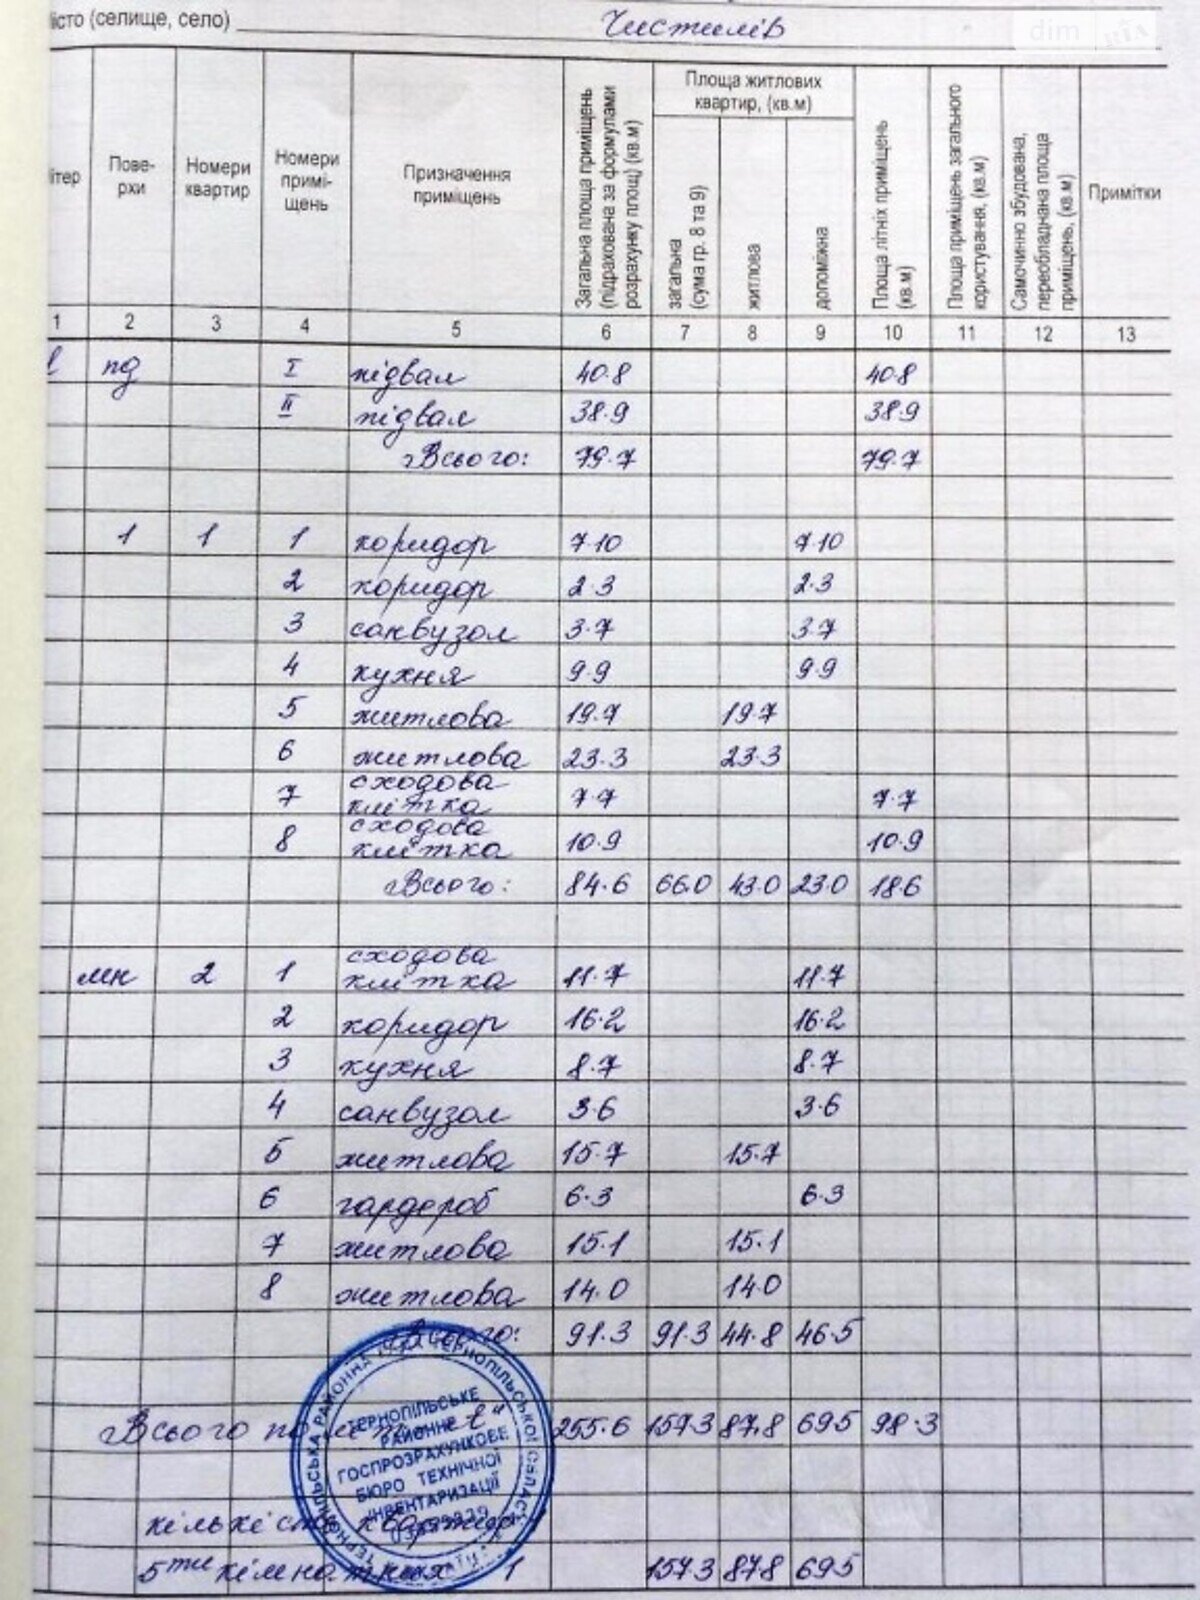 істо (селище, село) Чистилів
dim РІА
ітер
Пове-
рхи
Номери
квартир
Номери
примі-
щень
Призначення
приміщень
Загальна площа приміщень
(підрахована за формулами
розрахунку площ) (кв.м)
Площа житлових
квартир, (кв.м)
загальна
(сума гр. 8 та 9)
житлова
допоміжна
Площа літніх приміщень
(кв.м)
Площа приміщень загального
користування, (кв.м)
Самочинно збудована,
переобладнана площа
приміщень, (кв.м)
Примітки
1 2 3 4 5 6 7 8 9 10 11 12 13
пд I підвал 40.8 40.8
II підвал 38.9 38.9
Всього: 79.7 79.7
1 1 1 коридор 7.10 7.10
2 коридор 2.3 2.3
3 санвузол 3.7 3.7
4 кухня 9.9 9.9
5 житлова 19.7 19.7
6 житлова 23.3 23.3
7 сходова
клітка 7.7 7.7
8 сходова
клітка 10.9 10.9
Всього: 84.6 66.0 43.0 23.0 18.6
мн 2 1 сходова
клітка 11.7 11.7
2 коридор 16.2 16.2
3 кухня 8.7 8.7
4 санвузол 3.6 3.6
5 житлова 15.7 15.7
6 гардероб 6.3 6.3
7 житлова 15.1 15.1
8 житлова 14.0 14.0
Всього: 91.3 91.3 44.8 46.5
Всього по 255.6 157.3 87.8 69.5 98.3
кількість квартир
5ти кімнатних 1 157.3 87.8 69.5
ТЕРНОПІЛЬСЬКЕ
РАЙОННЕ
ГОСПРОЗРАХУНКОВЕ
БЮРО ТЕХНІЧНОЇ
ІНВЕНТАРИЗАЦІЇ